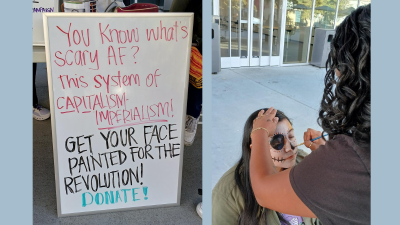 You Know what's
scary AF?
this system of
CAPITALISM-
IMPERIALISM!
GET YOUR FACE
PAINTED FOR THE
REVOLUTION!
DONATE!